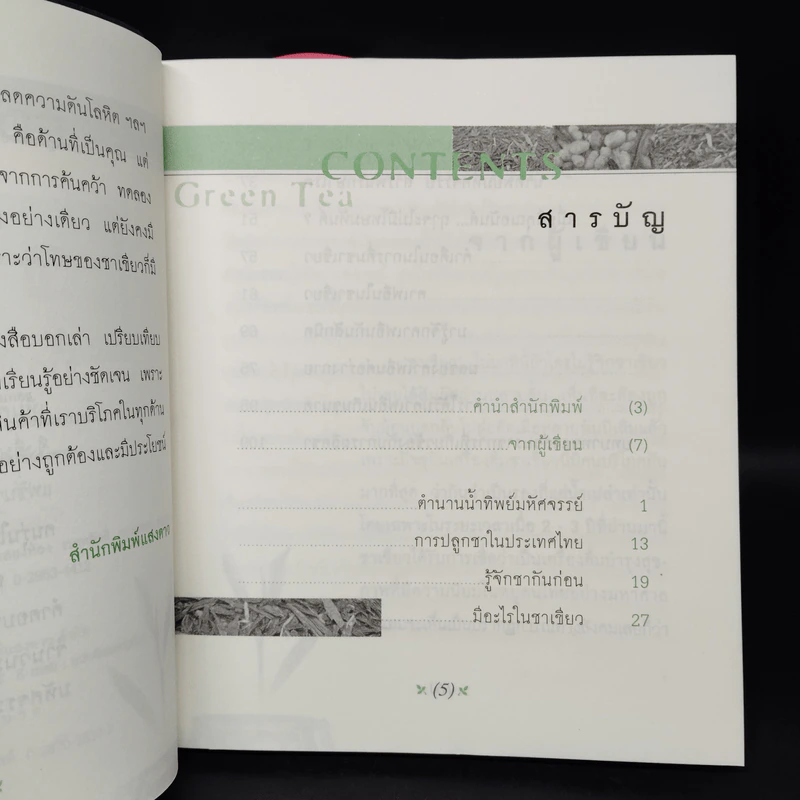 ลดความดันโลหิต ฯลฯ
คือด้านที่เป็นคุณ แต่
จากการค้นคว้า ทดลอง
งอย่างเดียว แต่ยังคงมี
ราะว่าโทษของชาเขียวก็มี
งสือบอกเล่า เปรียบเทียบ
เรียนรู้อย่างชัดเจน เพราะ
สินค้าที่เราบริโภคในทุกด้าน
อย่างถูกต้องและมีประโยชน์
สำนักพิมพ์แสงดาว
CONTENTS
Green Tea
สารบัญ
คำนำสำนักพิมพ์ (3)
จากผู้เขียน (7)
ตำนานน้ำทิพย์มหัศจรรย์ 1
การปลูกชาในประเทศไทย 13
รู้จักชากันก่อน 19
มีอะไรในชาเขียว 27
(5)